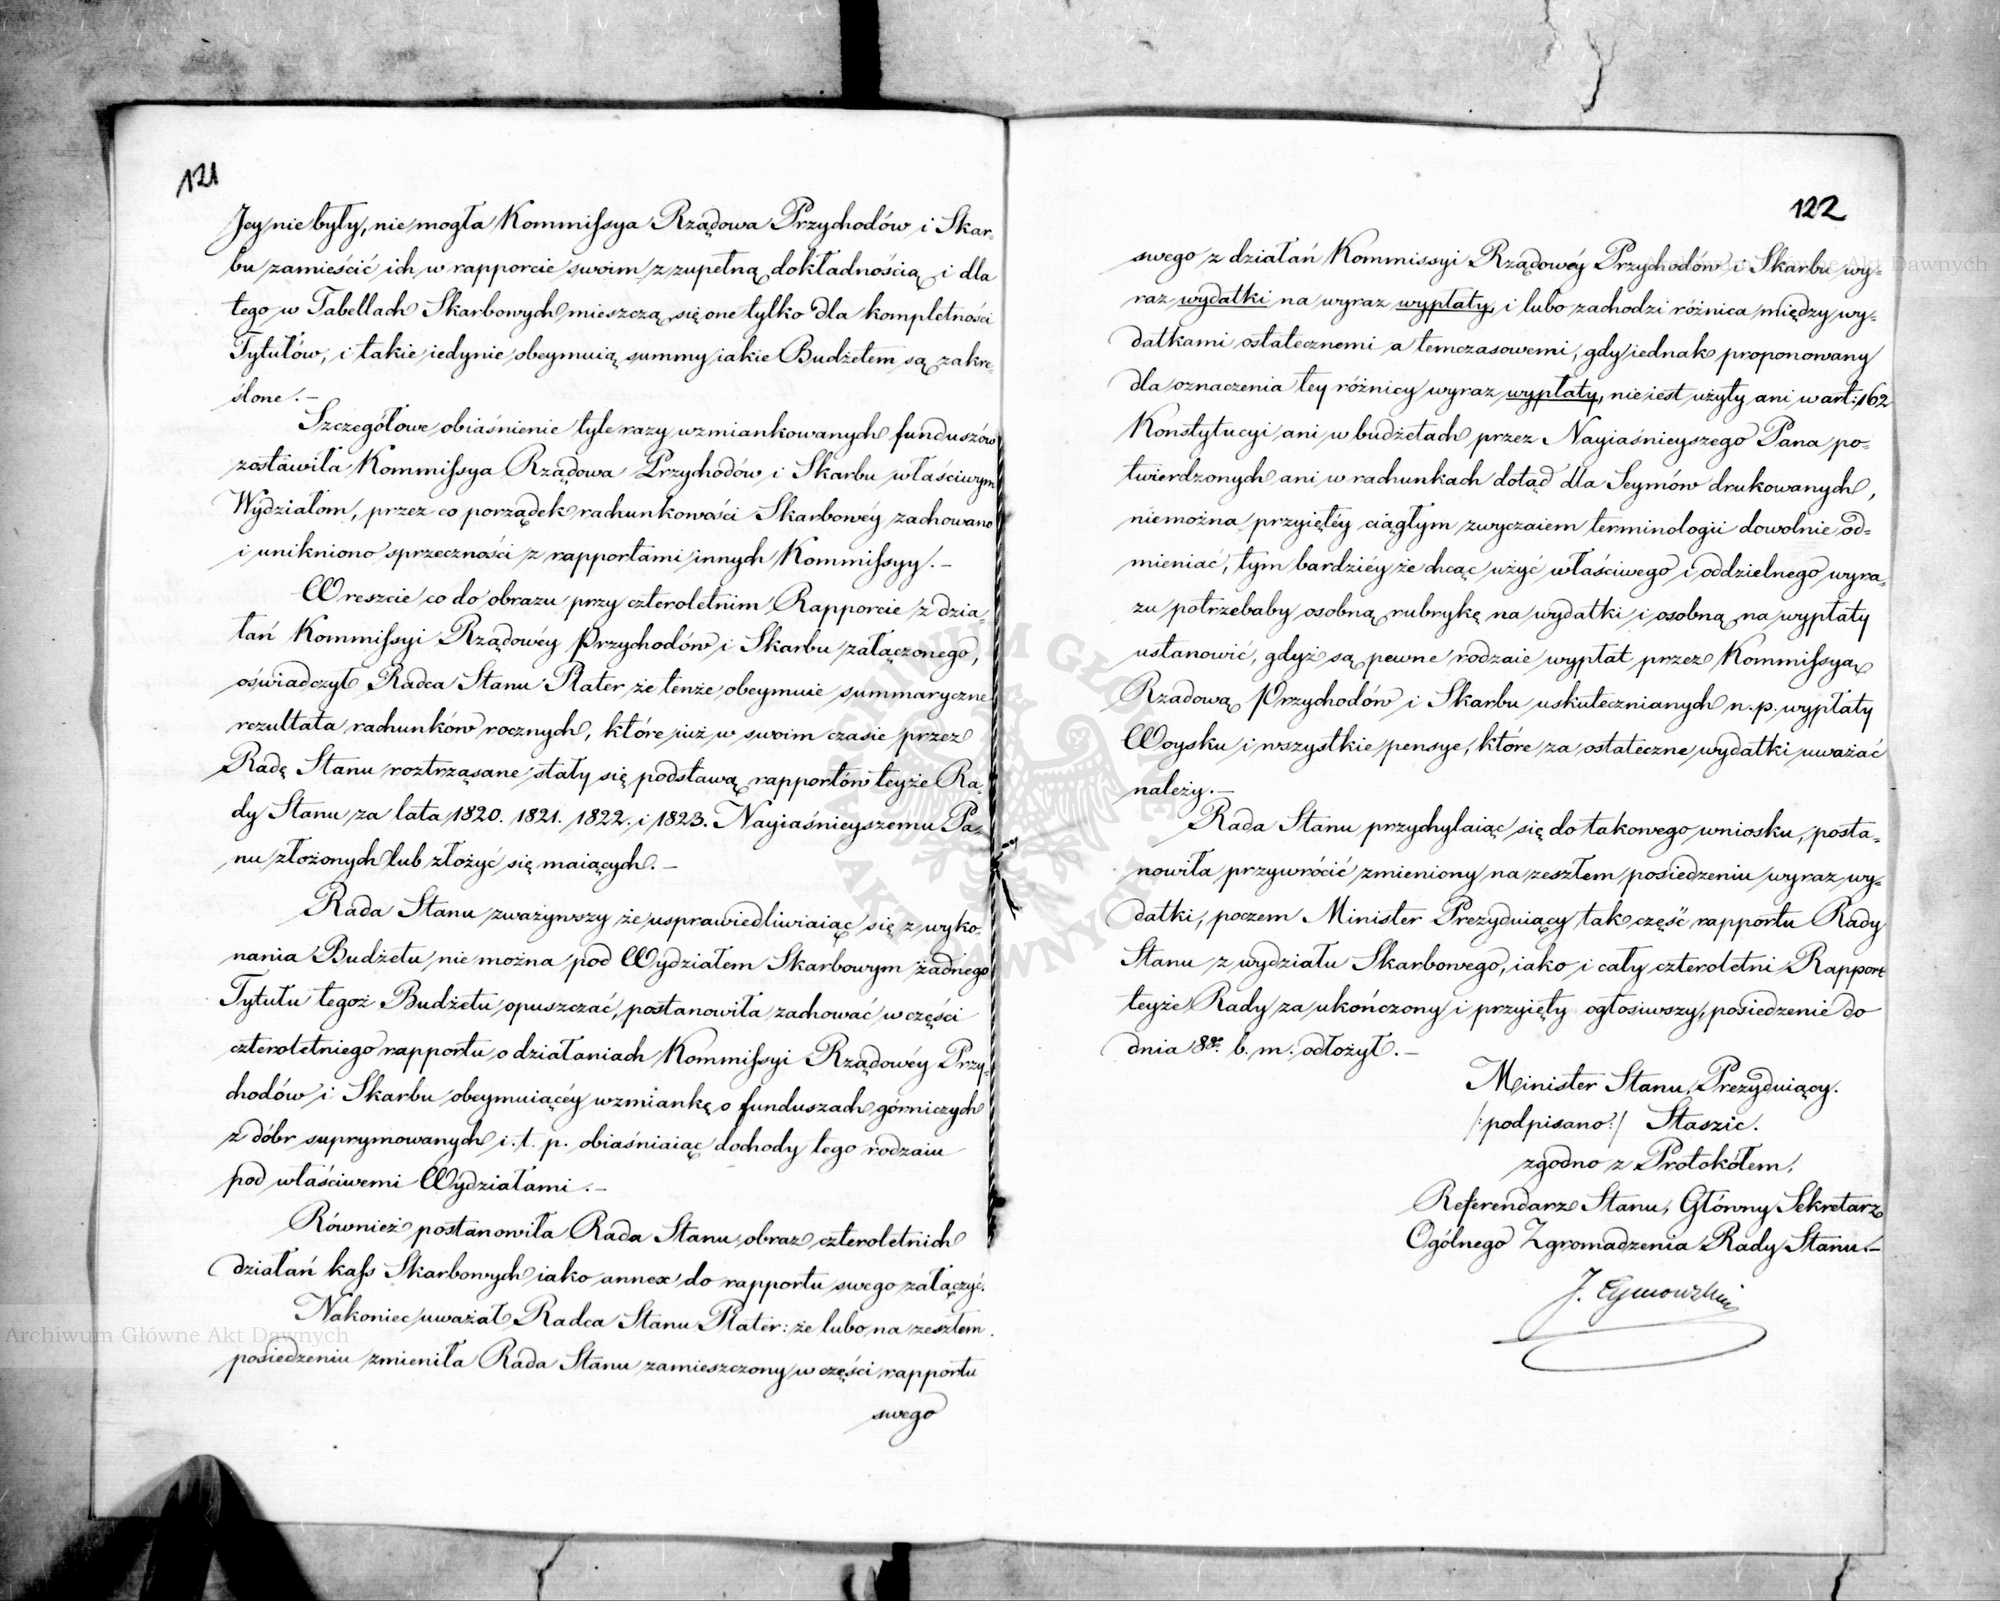 121
Jey nie były, nie mogła Kommissya Rządowa Przychodów i Skar-
bu zamieścić ich w rapporcie swoim z zupełną dokładnością i dla
tego w Tabellach Skarbowych mieszczą się one tylko dla kompletności
Tytułów, i takie iedynie obeymuią summy iakie Budżetem są zakre-
ślone. –
Szczegółowe obiaśnienie tyle razy wzmiankowanych funduszów
zostawiła Kommissya Rządowa Przychodów i Skarbu właściwym
Wydziałom, przez co porządek rachunkowości Skarbowéy zachowano
i unikniono sprzeczności z rapportami innych Kommissyy. –
Wreszcie co do obrazu przy czteroletnim Rapporcie z dzia-
łań Kommissyi Rządowéy Przychodów i Skarbu załączonego,
oświadczył Radca Stanu Plater że tenże obeymuie summaryczne
rezultata rachunków rocznych, które iuż w swoim czasie przez
Radę Stanu roztrząsane stały się podstawą rapportów teyże Ra-
dy Stanu za lata 1820. 1821. 1822. i 1823. Nayiaśnieyszemu Pa-
nu złożonych lub złożyć się maiących. –
Rada Stanu zważywszy że usprawiedliwiaiąc się z wyko-
nania Budżetu nie można pod Wydziałem Skarbowym żadnego
Tytułu tegoż Budżetu opuszczać, postanowiła zachować w części
czteroletniego rapportu o działaniach Kommissyi Rządowéy Przy-
chodów i Skarbu obeymuiącéy wzmiankę o funduszach górniczych
z dóbr suprymowanych i. t. p. obiaśniaiąc dochody tego rodzaiu
pod właściwemi Wydziałami. –
Również postanowiła Rada Stanu obraz czteroletnich
działań kass Skarbowych iako annex do rapportu swego załączyć.
Nakoniec uważał Radca Stanu Plater: że lubo na zeszłem
posiedzeniu zmieniła Rada Stanu zamieszczony w części rapportu
swego
122
swego z działań Kommissyi Rządowéy Przychodów i Skarbu wy-
raz wydatki na wyraz wypłaty, i lubo zachodzi różnica między wy-
datkami ostatecznemi a temczasowemi, gdy iednak proponowany
dla oznaczenia tey różnicy wyraz wypłaty, nie iest użyty ani w art: 162
Konstytucyi ani w budżetach przez Nayiaśnieyszego Pana po-
twierdzonych ani w rachunkach dotąd dla Seymów drukowanych,
niemożna przyiętéy ciągłym zwyczaiem terminologii dowolnie od-
mieniać, tym bardziéy że chcąc użyć właściwego i oddzielnego wyra-
zu potrzebaby osobną rubrykę na wydatki i osobną na wypłaty
ustanowić, gdyż są pewne rodzaie wypłat przez Kommissyą
Rządową Przychodów i Skarbu uskutecznianych n. p. wypłaty
Woysku i wszystkie pensye, które za ostateczne wydatki uważać
należy. –
Rada Stanu przychylaiąc się do takowego wniosku, posta-
nowiła przywrócić zmieniony na zeszłem posiedzeniu wyraz wy-
datki, poczem Minister Prezyduiący tak część rapportu Rady
Stanu z wydziału Skarbowego, iako i cały czteroletni Rapport
teyże Rady za ukończony i przyięty ogłosiwszy, posiedzenie do
dnia 8go. b. m. odłożył. –
Minister Stanu Prezyduiący.
/:podpisano:/ Staszic.
zgodno z Protokółem,
Referendarz Stanu, Główny Sekretarz
Ogólnego Zgromadzenia Rady Stanu. –
J. Tymowski
Archiwum Główne Akt Dawnych
Archiwum Główne Akt Dawnych
ARCHIWUM GŁÓWNE AKT DAWNYCH